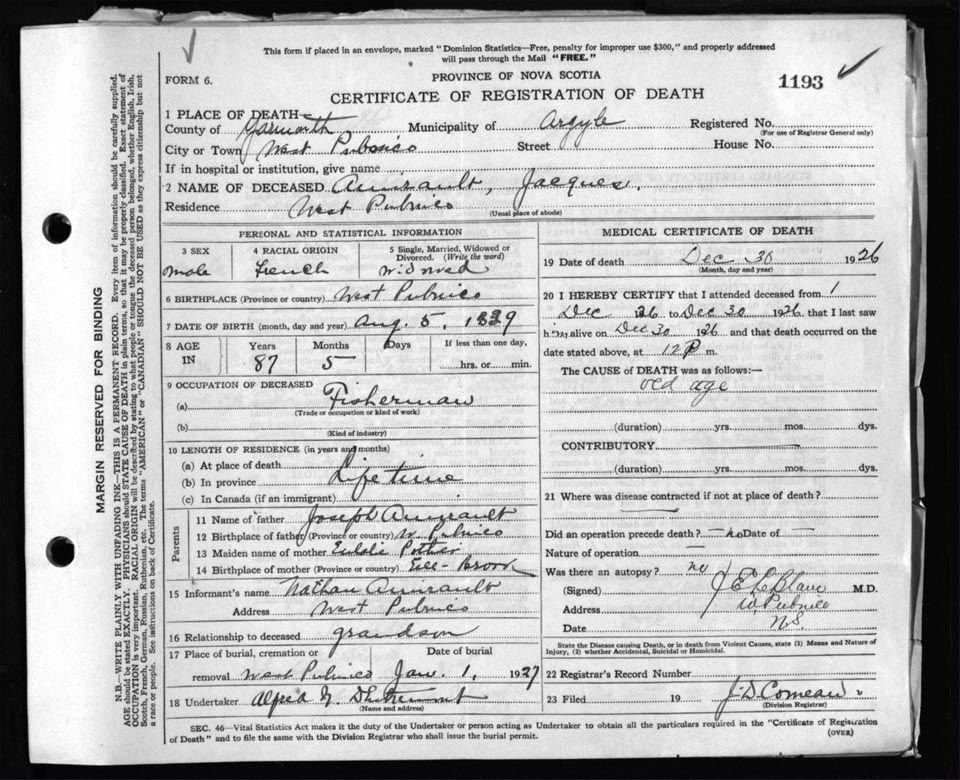 This form if placed in an envelope, marked "Dominion Statistics—Free, penalty for improper use $300," and properly addressed
will pass through the Mail "FREE."
FORM 6.
PROVINCE OF NOVA SCOTIA
1193
CERTIFICATE OF REGISTRATION OF DEATH
1 PLACE OF DEATH—
County of Yarmouth Municipality of Argyle Registered No.
(For use of Registrar General only)
City or Town West Pubnico Street House No.
If in hospital or institution, give name
2 NAME OF DECEASED Amirault, Jacques.
Residence West Pubnico
(Usual place of abode)
PERSONAL AND STATISTICAL INFORMATION
3 SEX 4 RACIAL ORIGIN 5 Single, Married, Widowed or
Divorced. (Write the word)
male French widowed
6 BIRTHPLACE (Province or country) West Pubnico
7 DATE OF BIRTH (month, day and year) Aug. 5, 1839
8 AGE IN Years Months Days If less than one day,
87 5 hrs. or min.
9 OCCUPATION OF DECEASED
(a) Fisherman
(Trade or occupation or kind of work)
(b)
(Kind of industry)
10 LENGTH OF RESIDENCE (in years and months)
(a) At place of death
(b) In province Life time
(c) In Canada (if an immigrant)
Parents
11 Name of father Joseph Amirault
12 Birthplace of father (Province or country) W Pubnico
13 Maiden name of mother Eulalie Pothier
14 Birthplace of mother (Province or country) Eel-Brook
15 Informant's name Nathan Amirault
Address West Pubnico
16 Relationship to deceased grandson
17 Place of burial, cremation or Date of burial
removal West Pubnico Jan. 1, 1927
18 Undertaker Alfred
(Name and address)
MEDICAL CERTIFICATE OF DEATH
19 Date of death Dec 30 1926
(Month, day and year)
20 I HEREBY CERTIFY that I attended deceased from 1
Dec 1926 to Dec 30 1926, that I last saw
him alive on Dec 30 1926 and that death occurred on
date stated above, at 12 P m.
The CAUSE of DEATH was as follows:—
old age
(duration) yrs. mos. dys.
CONTRIBUTORY
(duration) yrs. mos. dys.
21 Where was disease contracted if not at place of death?
Did an operation precede death? — no Date of —
Nature of operation —
Was there an autopsy? no
(Signed) J E LeBlanc M.D.
Address W Pubnico
Date N.S
State the Disease causing Death, or in death from Violent Causes, state (1) Means and Nature of
Injury, (2) whether Accidental, Suicidal or Homicidal.
22 Registrar's Record Number
23 Filed 19 J. D Comeau
(Division Registrar)
SEC. 46—Vital Statistics Act makes it the duty of the Undertaker or person acting as Undertaker to obtain all the particulars required in the "Certificate of Registration
of Death" and to file the same with the Division Registrar who shall issue the burial permit.
(OVER)
MARGIN RESERVED FOR BINDING
N.B.—WRITE PLAINLY WITH UNFADING INK—THIS IS A PERMANENT RECORD. Every item of information should be carefully supplied.
AGE should be stated EXACTLY. PHYSICIANS should STATE CAUSE OF DEATH in plain terms, so that it may be properly classified. Exact statement of
OCCUPATION is very important. RACIAL ORIGIN will be described by stating to what people or tongue the deceased person belonged, whether English, Irish,
Scotch, French, German, Russian, Ruthenian, etc. The terms "AMERICAN" or "CANADIAN" SHOULD NOT BE USED as they express citizenship but not
a race or people. See instructions on back of Certificate.